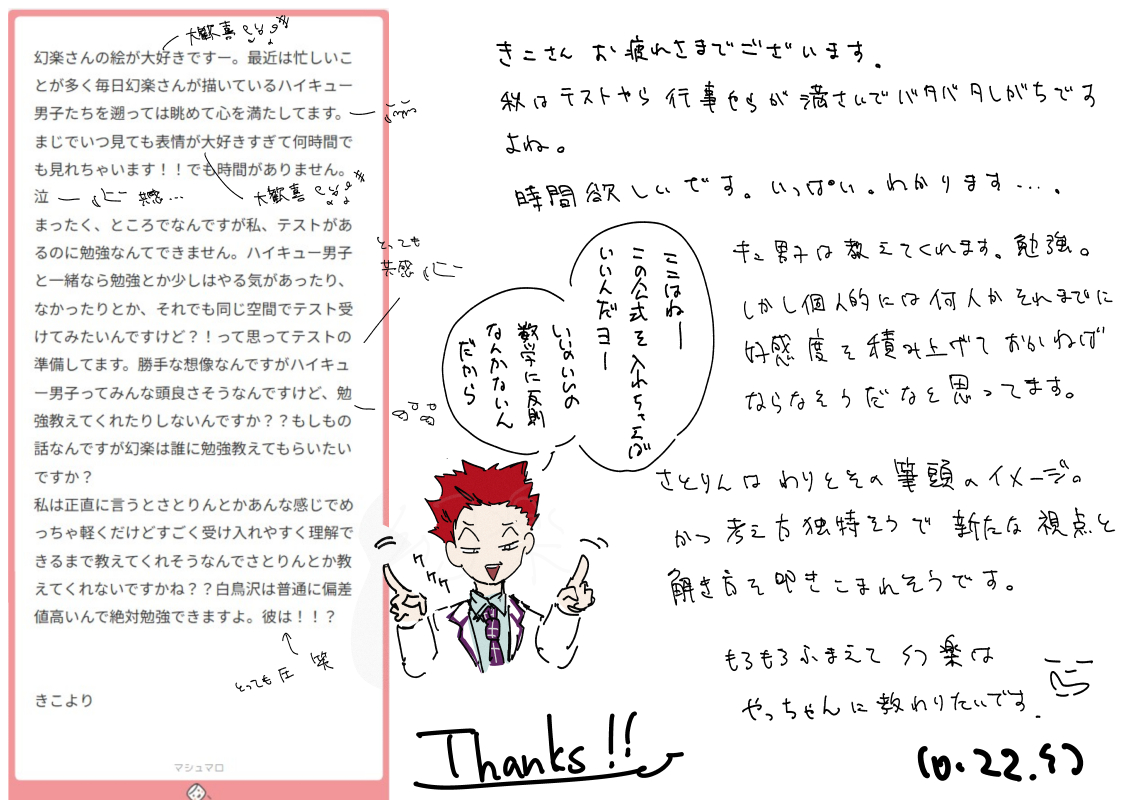 大歓喜
幻楽さんの絵が大好きですー。最近は忙しいこ
とが多く毎日幻楽さんが描いているハイキュー
男子たちを遡っては眺めて心を満たしてます。
まじでいつ見ても表情が大好きすぎて何時間で
も見れちゃいます！！でも時間がありません。
泣
共感…
大歓喜
まったく、ところでなんですが私、テストがあ
るのに勉強なんてできません。ハイキュー男子
と一緒なら勉強とか少しはやる気があったり、
なかったりとか、それでも同じ空間でテスト受
けてみたいんですけど？！って思ってテストの
準備してます。勝手な想像なんですがハイキュ
ー男子ってみんな頭良さそうなんですけど、勉
強教えてくれたりしないんですか？？もしもの
話なんですが幻楽は誰に勉強教えてもらいたい
ですか？
私は正直に言うとさとりんとかあんな感じでめ
っちゃ軽くだけどすごく受け入れやすく理解で
きるまで教えてくれそうなんでさとりんとか教
えてくれないですかね？？白鳥沢は普通に偏差
値高いんで絶対勉強できますよ。彼は！！？
とっても圧 笑
きこより
マシュマロ
とっても
共感
きこさん お疲れさまでございます。
秋はテストやら行事やらが満さいでバタバタしがちです
よね。
時間欲しいです。いっぱい。わかります…。
ここはねー
この公式を入れちゃえば
いいんだヨー
いいのいいの
数学に反則
なんかないん
だから
キュ男子は教えてくれます。勉強。
しかし個人的には何人かそれまでに
好感度を積み上げておかねば
ならなそうだなと思ってます。
さとりんはわりとその筆頭のイメージ。
かつ考え方独特そうで新たな視点と
解き方を叩きこまれそうです。
ケケケ
もろもろふまえて幻楽は
やっちゃんに教わりたいです.
Thanks!!
10.22.幻